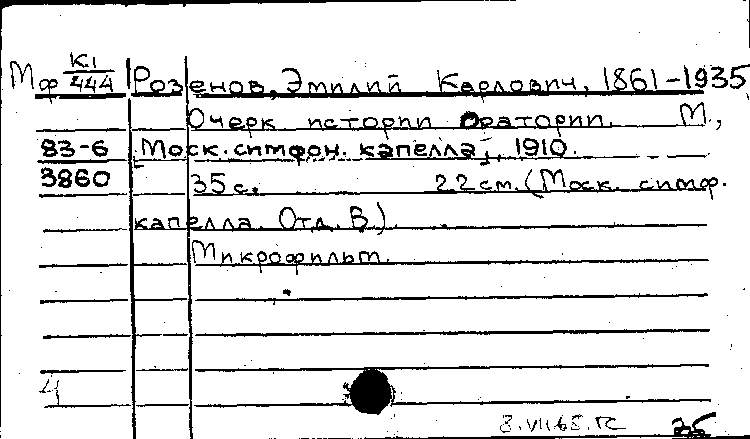 Мф К1/444 Розенов, Эмилий Карлович, 1861-1935
Очерк истории оратории. М.,
83-6 [Моск. симфон. капелла], 1910.
3860 35 с. 22 см. (Моск. симф.
капелла. Отд. В.)
Микрофильм.
4
8.VII.68.